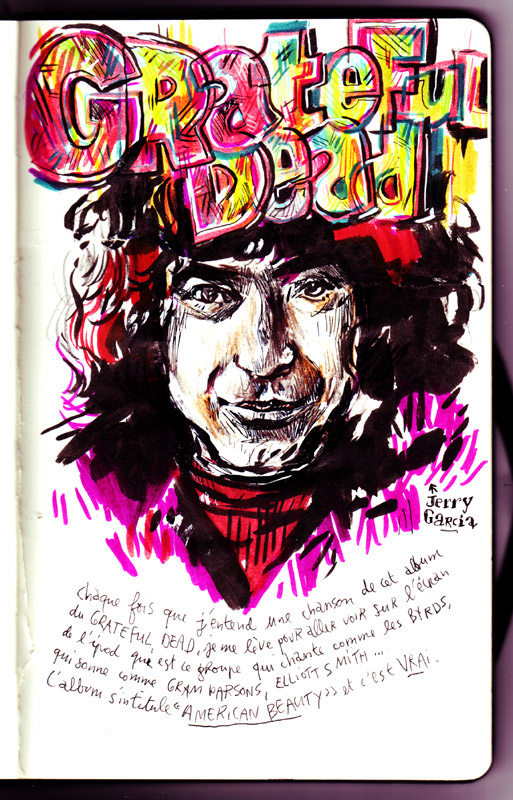 GRateFuL
Dead
Jerry
GaRcia
chaque fois que j'entend une chanson de cet album
du GRATEFUL DEAD, je me lève pour aller voir sur l'écran
de l'ipod quel est ce groupe qui chante comme les BYRDS,
qui sonne comme GRAM PARSONS, ELLIOTT SMITH...
L'album s'intitule "AMERICAN BEAUTY" et c'est VRAi.